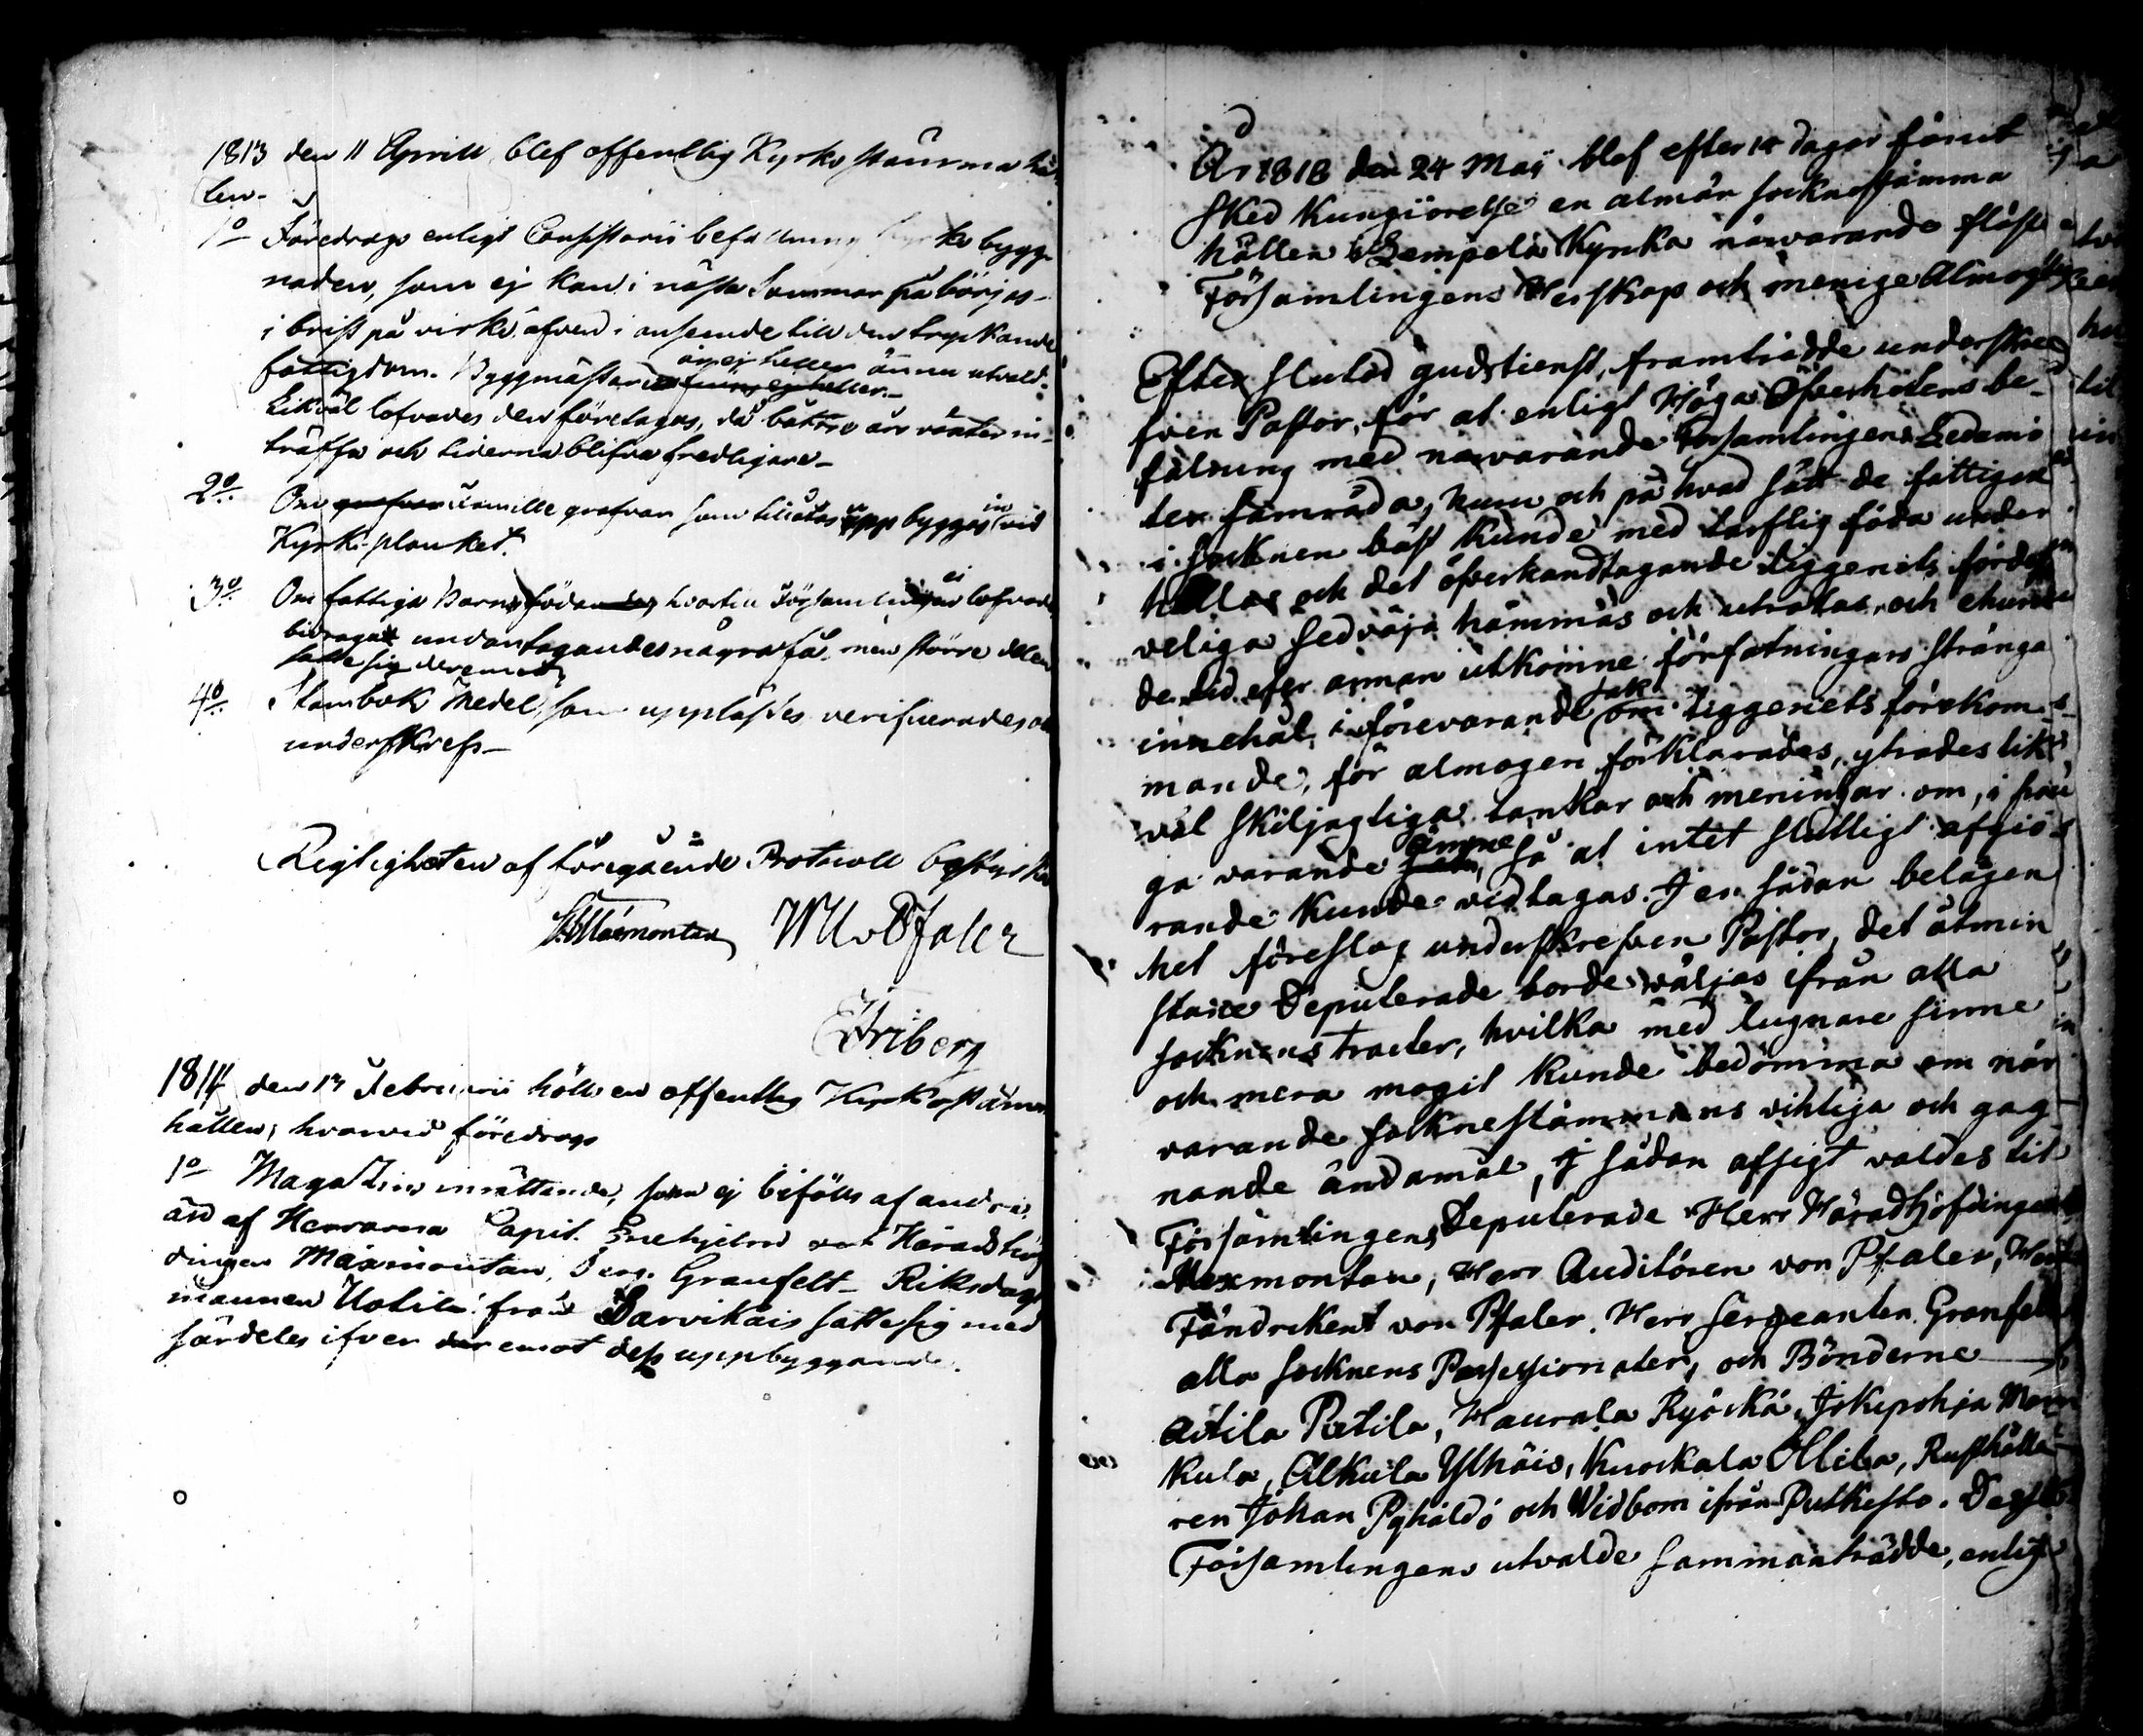 1813 den 11 Aprill blef offentlig Kyrko stämma hål
len.
1o Föredrogs enligt Consistorii befallning Kyrko bygg
naden, som ej kan i nästa Sommar på börjas
i brist på virke, äfven i anseende till den tryckande
fattigdom. Byggmästaren är ej heller ännu utvald.
Likväl lofvades den företagas, då bättre år vänter in
träffa och tiderna blifva fredligare
2o Om grafvar Famille grafvar som tillåtas upp byggas in vid
Kyrk-planket.
3o Om fattiga Barns födande, hvartill Församlingen ei lofvade
bidraga undantagandes några få. men större delen
satte sig deremot
4o Stambok Medel, som upplästes verificerades och
underskrefs
Rigtigheten af föregående Protocoll bestyrka
Maxmontan W U v Pfaler
E Friberg
1814 den 13 Februarii hölls en offentlig Kyrkostämma
hållen, hvarvid föredrogs
1o Magazins inrättande, som ej bifölls af andra
än af Herrarna Capit. Enehjelm och Häradshöf
dingen Maxmontan, Serg. Granfelt Riksdags
mannen Uotila från Sarvikais satte sig med
särdeles ifver der emot dess uppbyggande.
År 1818 den 24 Maij blef efter 14 dagar förut
sked Kungiörelse en almän sockne stämma
hållen i Lempela Kyrka närvarande flåste
Församlingens Herskap och menige Almoge
Efter slutad gudstienst, framträdde underskre
fven Pastor, för at enligt Höga Öfverhetens be
falning med närvarande Församlingens Ledamö
ter samråda, hum och på hvad sätt de fattiga
i Socknen bäst kunde med tarflig föda under
hållas och det öfverhandtagande Tiggeriets förderf
veliga sedvaja hämmas och utrotas, och ehuru
de tid efter annan utkomne författningars stränga
innehål, i förevarande sak om Tiggeriets förekom
mande, för almogen förklarades, ytrades lik
väl skiljagtiga tankar och meningar om, i frå
ga varande ämne, så at intet slutligt afgiö
rande kunde vidtagas. I en sådan belägen
het föreslog underskrefven Pastor, det åtmin
stone Deputerade borde väljas ifrån alla
socknens tracter, hvilka med lugnare sinne
och mera mogit kunde bedömma om när
varande socknestämmans viktiga och gag
nande ändamål, I sådan afsigt valdes til
Församlingens Deputerade Herr Häradshöfdingen
Maxmontan, Herr Auditören von Pfaler, Herr
Fändriken von Pfaler. Herr Sergeanten Granfelt
alla socknens Possessionater, och Bönderne
Aitila Pietila, Haurala Ryöckä, Jokipohja Mor
kula, Alkula Ylhäis, Kuockala Ollila, Rusthålla
ren Johan Pyhäldö och Widbom ifrån Putkisto. Desse
Församlingens utvalde sammanträdde, enligt